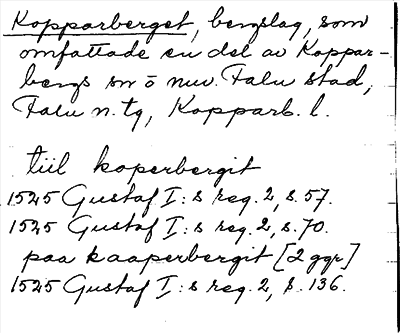 Kopparberget, bergslag, som
omfattade en del av Koppar-
bergs sn o nuv. Falu stad,
Falu n. tg, Kopparb. l.
tiil koperbergit
1525 Gustaf I:s reg. 2, s. 57.
1525 Gustaf I:s reg. 2, s. 70.
paa kaaperbergit [2 ggr]
1525 Gustaf I:s reg. 2, s. 136.